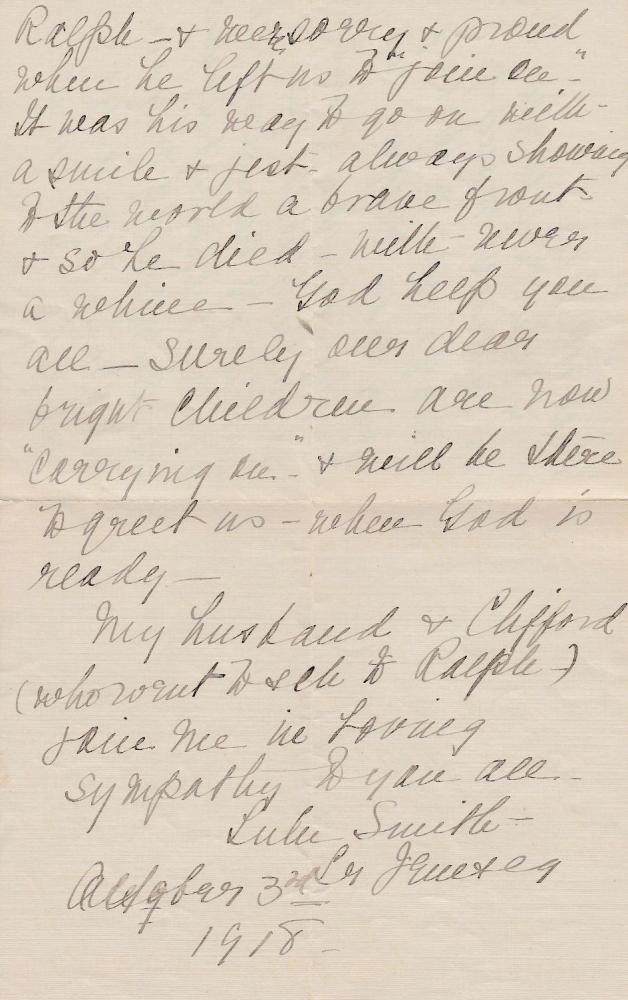 Ralph - & were sorry & proud
when he left us to "join on".
It was his way to go on with
a smile & jest - always showing
to the world a brave front
& so he died - with never
a whine - God help you
all - Surely our dear
bright children are now
"carrying on" - & will be there
to greet us - when God is
ready -
My husband & Clifford
(who went to sch to Ralph)
join me in loving
sympathy to you all -
Lulu Smith -
October 3rd
1918 -